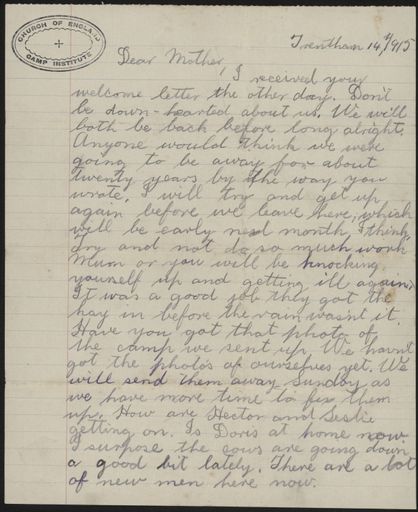 CHURCH OF ENGLAND
CAMP INSTITUTE
Trentham 14/4/915
Dear Mother,
I received your
welcome letter the other day. Don't
be down-hearted about us. We will
both be back before long alright.
Anyone would think we were
going to be away for about
twenty years by the way you
wrote. I will try and get up
again before we leave here, which
will be early next month, I think
Try and not do so much work
Mum or you will be knocking
yourself up and getting ill again.
It was a good job they got the
hay in before the rain wasnt it.
Have you got that photo of
the camp we sent up. We havnt
got the photos of ourselves yet. We
will send them away Sunday as
we have more time to fix them
up. How are Hector and Leslie
getting on. Is Doris at home now.
I surpose the cows are going down
a good bit lately. There are a lot
of new men here now.